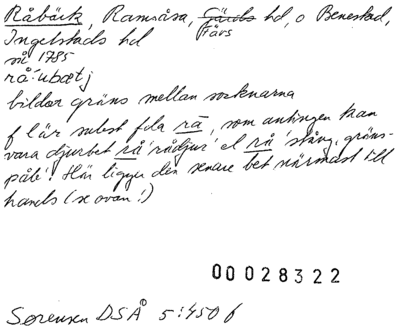 Råbäck, Ramsåsa, Färs hd, o Benestad,
Ingelstads hd
rå:ubætj
bildar gräns mellan socknarna
f l är subst fda rå, som antingen kan
vara djurbet rå 'rådjur' el rå 'stång, gräns-
påle'. Här ligger den senare bet närmast till
hands (se ovan!)
00028322
Sørensen DSÅ 5:450 f